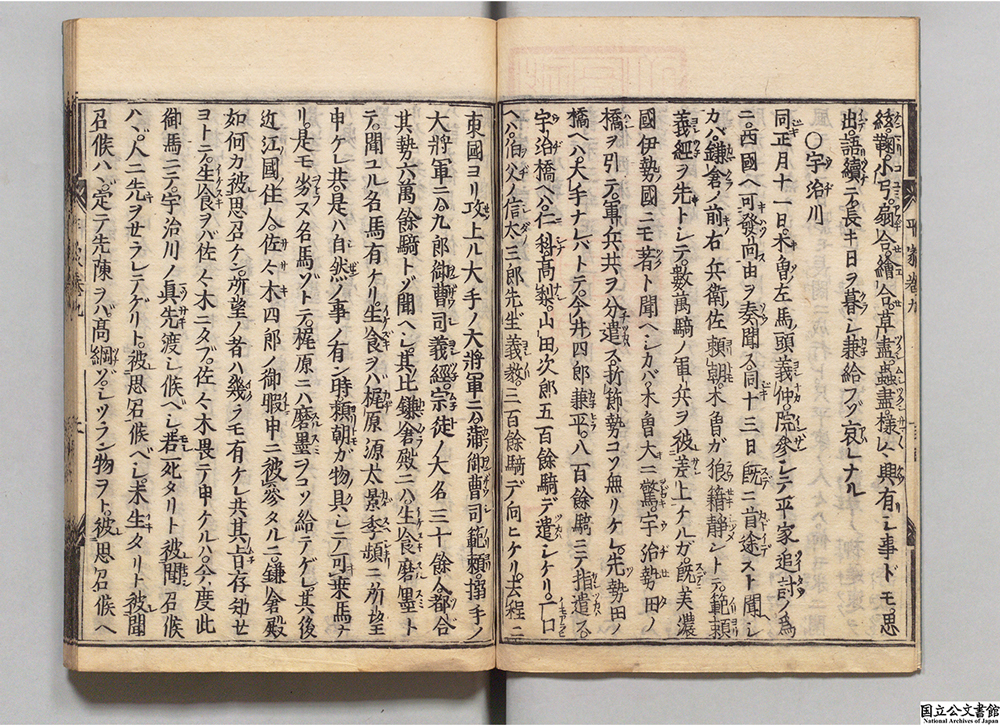 絃鞠小弓扇合繪合草盡蟲盡樣々興有シ事ドモ思
出語續テ不長キ日ヲ暮シ兼給フゾ哀レナル
〇宇治川
同正月十一日木曽左馬頭義仲院參シテ平家追討ノ爲
ニ西國ヘ可發向由ヲ奏聞ス同十三日既ニ首途スト聞シ
カバ鎌倉ノ前右兵衛佐頼朝木曽ガ狼籍静ントテ範頼
義經ヲ先トシテ數萬騎ノ軍兵ヲ被差上ケルガ既美濃
國伊勢國ニモ著ト聞ヘシカバ木曽大ニ驚宇治勢田ノ
橋ヲ引テ軍兵共ヲ分遣ス折節勢コソ無リケレ先勢田ノ
橋ヘハ大手ナレバトテ今井四郎兼平八百餘騎ニテ指遣ス
宇治橋ヘハ仁科高梨山田次郎五百餘騎デ遣シケリ一口
ヘハ伯父ノ信太三郎先生義教三百餘騎デ向ヒケリ去程ニ
東國ヨリ攻上ル大手ノ大將軍ニハ蒲御曹司範頼搦手ノ
大將軍ニハ九郎御曹司義經宗徒ノ大名三十餘人都合
其勢六萬餘騎トゾ聞ヘシ其比鎌倉殿ニハ生食磨墨ト
テ聞ユル名馬有ケリ生食ヲバ梶原源太景季頻ニ所望
申ケレ共是ハ自然ノ事ノ有ン時頼朝ガ物具シテ可乗馬ナ
リ是モ劣ヌ名馬ゾトテ梶原ニハ磨墨ヲコソ給テゲレ其後
近江國住人佐々木四郎ノ御暇申ニ被參タルニ鎌倉殿
如何カ被思召ケン所望ノ者ハ幾ラモ有ケレ共其旨存知せ
ヨトテ生食ヲバ佐々木ニタブ佐々木畏テ申ケルハ今度此
御馬ニテ宇治川ノ真先渡シ候ベシ若死タリト被聞召候
ハヾ人ニ先ヲせラレテゲリト被思召候ベシ未生タリト被聞
召候ハヾ定テ先陳ヲバ髙綱ゾシツラン物ヲト被思召候ヘ
平家巻九
国立公文書館
National Archives of Japan